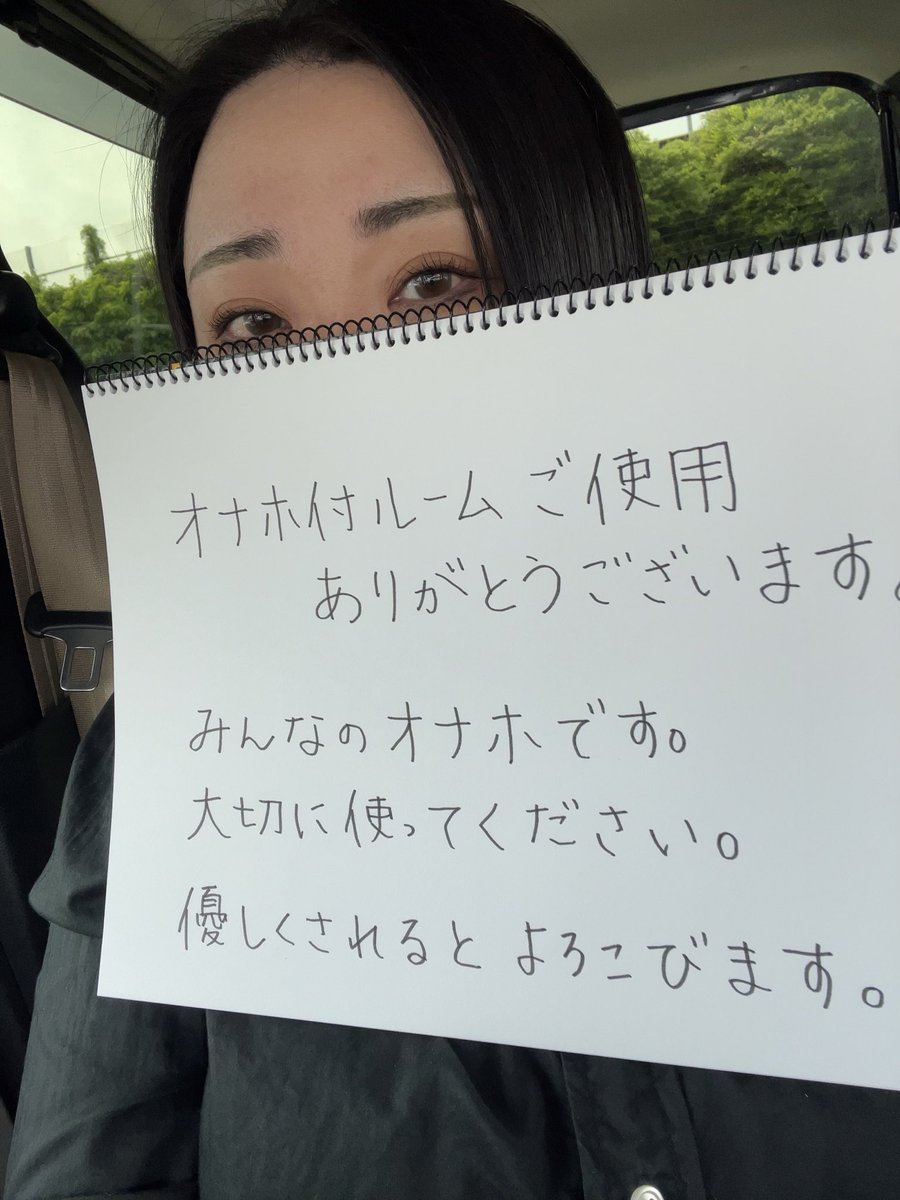 オナホ付ルームご使用
ありがとうございます。
みんなのオナホです。
大切に使ってください。
優しくされるとよろこびます。